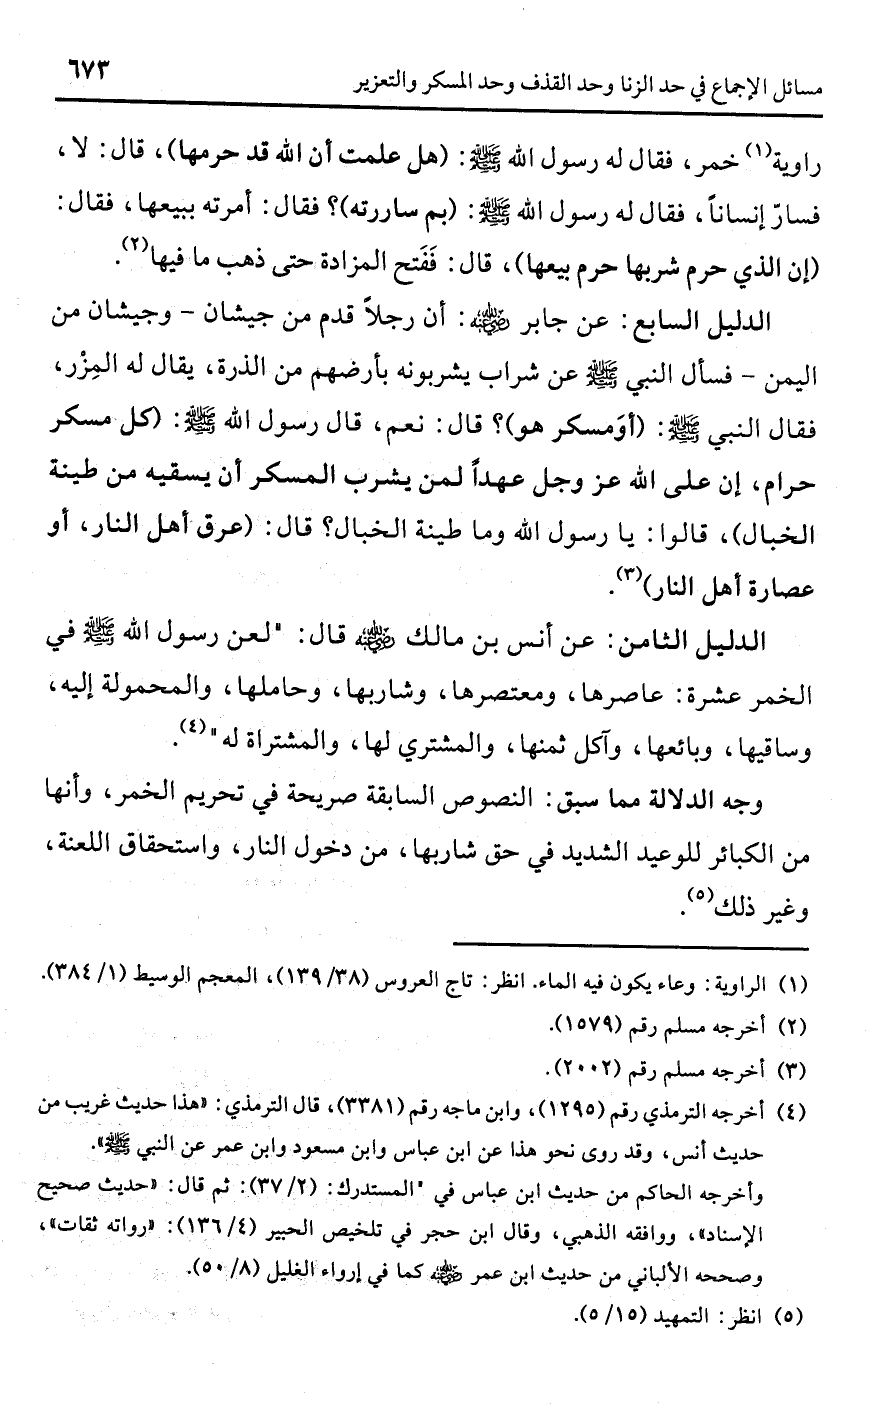 مسائل الإجماع في حد الزنا وحد القذف وحد المسكر والتعزير ٦٧٣
راوية(١) خمر، فقال له رسول الله ﷺ: (هل علمت أن الله قد حرمها)، قال: لا،
فسارّ إنساناً، فقال له رسول الله ﷺ: (بم ساررته)؟ فقال: أمرته ببيعها، فقال:
(إن الذي حرم شربها حرم بيعها)، قال: فَفَتح المزادة حتى ذهب ما فيها(٢).
الدليل السابع: عن جابر رضي الله عنه: أن رجلاً قدم من جيشان - وجيشان من
اليمن - فسأل النبي ﷺ عن شراب يشربونه بأرضهم من الذرة، يقال له المِزْر،
فقال النبي ﷺ: (أوَمسكر هو)؟ قال: نعم، قال رسول الله ﷺ: (كل مسكر
حرام، إن على الله عز وجل عهداً لمن يشرب المسكر أن يسقيه من طينة
الخبال)، قالوا: يا رسول الله وما طينة الخبال؟ قال: (عرق أهل النار، أو
عصارة أهل النار)(٣).
الدليل الثامن: عن أنس بن مالك رضي الله عنه قال: "لعن رسول الله ﷺ في
الخمر عشرة: عاصرها، ومعتصرها، وشاربها، وحاملها، والمحمولة إليه،
وساقيها، وبائعها، وآكل ثمنها، والمشتري لها، والمشتراة له"(٤).
وجه الدلالة مما سبق: النصوص السابقة صريحة في تحريم الخمر، وأنها
من الكبائر للوعيد الشديد في حق شاربها، من دخول النار، واستحقاق اللعنة،
وغير ذلك(٥).
(١) الراوية: وعاء يكون فيه الماء. انظر: تاج العروس (٣٨/ ١٣٩)، المعجم الوسيط (١/ ٣٨٤).
(٢) أخرجه مسلم رقم (١٥٧٩).
(٣) أخرجه مسلم رقم (٢٠٠٢).
(٤) أخرجه الترمذي رقم (١٢٩٥)، وابن ماجه رقم (٣٣٨١)، قال الترمذي: «هذا حديث غريب من
حديث أنس، وقد روى نحو هذا عن ابن عباس وابن مسعود وابن عمر عن النبي ﷺ».
وأخرجه الحاكم من حديث ابن عباس في "المستدرك: (٢/ ٣٧): ثم قال: «حديث صحيح
الإسناد»، ووافقه الذهبي، وقال ابن حجر في تلخيص الحبير (٤/ ١٣٦): «رواته ثقات»،
وصححه الألباني من حديث ابن عمر رضي الله عنه كما في إرواء الغليل (٨/ ٥٠).
(٥) انظر: التمهيد (١٥/ ٥).